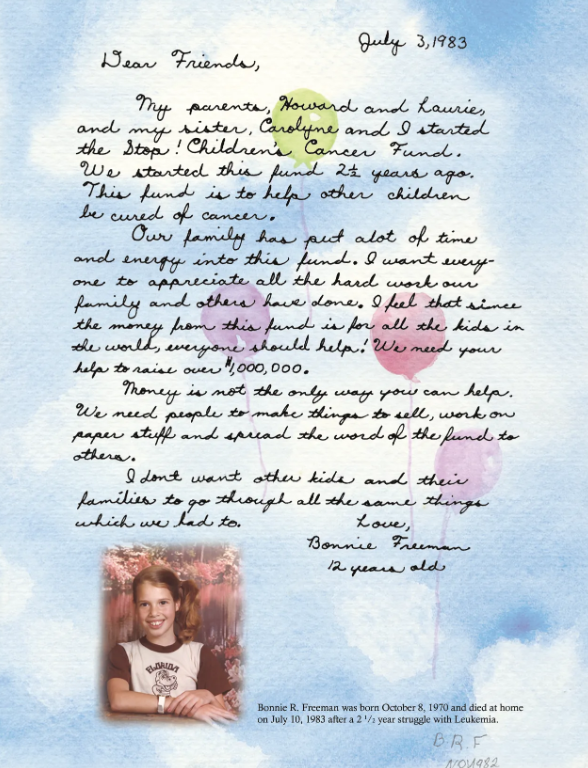 July 3, 1983
Dear Friends,
My parents, Howard and Laurie,
and my sister, Carolyne and I started
the Stop! Children's Cancer Fund.
We started this fund 2½ years ago.
This fund is to help other children
be cured of cancer.
Our family has put alot of time
and energy into this fund. I want every-
one to appreciate all the hard work our
family and others have done. I feel that since
the money from this fund is for all the kids in
the world, everyone should help! We need your
help to raise over $1,000,000.
Money is not the only way you can help.
We need people to make things to sell, work on
paper stuff and spread the word of the fund to
others.
I dont want other kids and their
families to go through all the same things
which we had to.
Love,
Bonnie Freeman
12 years old
FLORIDA
Bonnie R. Freeman was born October 8, 1970 and died at home
on July 10, 1983 after a 2 1/2 year struggle with Leukemia.
B.R.F
NOV1982